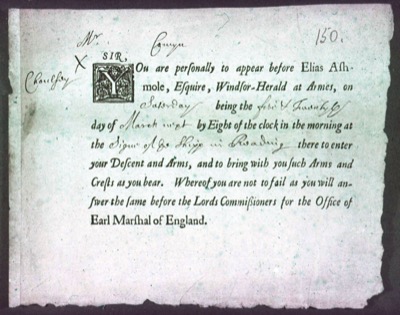 Mr. Comyn 150.
SIR,
YOu are personally to appear before Elias Ash-
mole, Esquire, Windsor-Herald at Armes, on
Saterday being the Twenty
day of March next by Eight of the clock in the morning at
the Signe of the Shipp in Reading there to enter
your Descent and Arms, and to bring with you such Arms and
Crests as you bear. Whereof you are not to fail as you will an-
swer the same before the Lords Commissioners for the Office of
Earl Marshal of England.